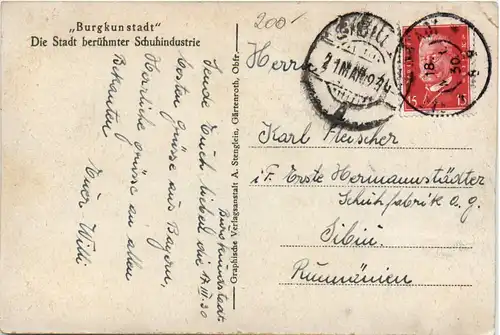 „Burgkunstadt"
Die Stadt berühmter Schuhindustrie
200-
Burgkunstadt
17 III 30
Sende Euch Lieben die
besten Grüße aus Bayern,
Herzliche Grüße an alle
Bekannten
Euer Willi
Graphische Verlagsanstalt A. Stenglein, Gärtenroth, Obfr.
SIBIU
21 MAR 930
15
15
18
30
Herrn
Karl Fleischer
i/F. Erste Hermannstädter
Schuhfabrik a.g.
Sibiu
Rumänien